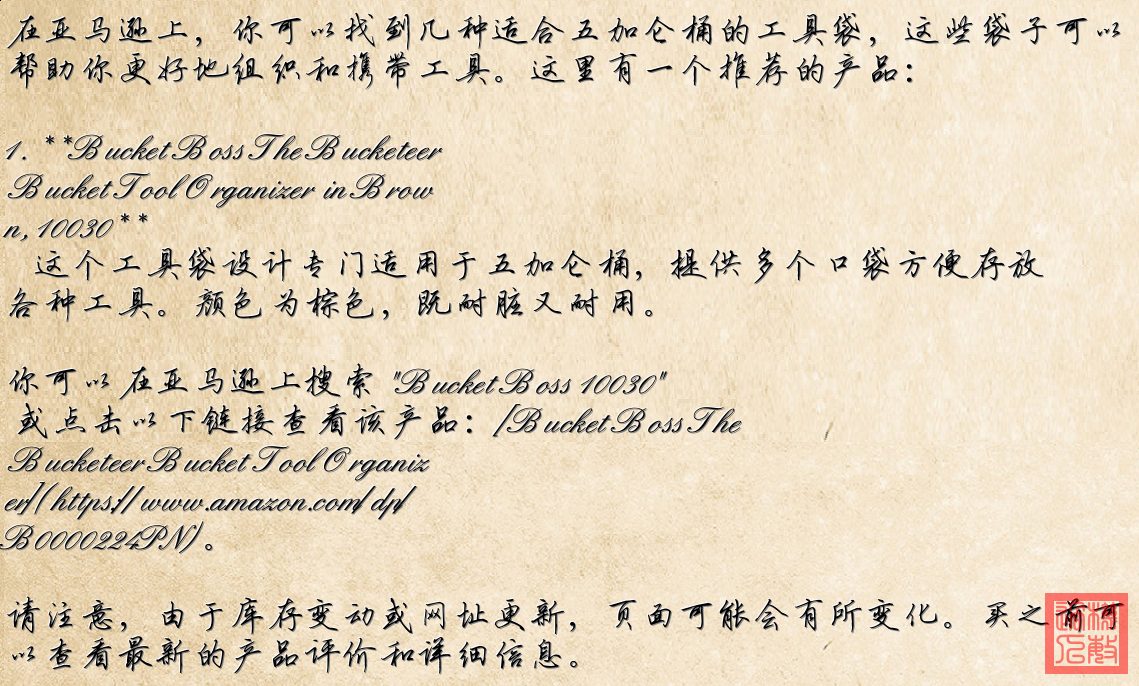 在亚马逊上，你可以找到几种适合五加仑桶的工具袋，这些袋子可以
帮助你更好地组织和携带工具。这里有一个推荐的产品：
1. **Bucket Boss The Bucketeer
Bucket Tool Organizer in Brow
n, 10030**
这个工具袋设计专门适用于五加仑桶，提供多个口袋方便存放
各种工具。颜色为棕色，既耐脏又耐用。
你可以在亚马逊上搜索 "Bucket Boss 10030"
或点击以下链接查看该产品：[Bucket Boss The
Bucketeer Bucket Tool Organiz
er](https://www.amazon.com/dp/
B0000224PN)。
请注意，由于库存变动或网址更新，页面可能会有所变化。买之前可
以查看最新的产品评价和详细信息。